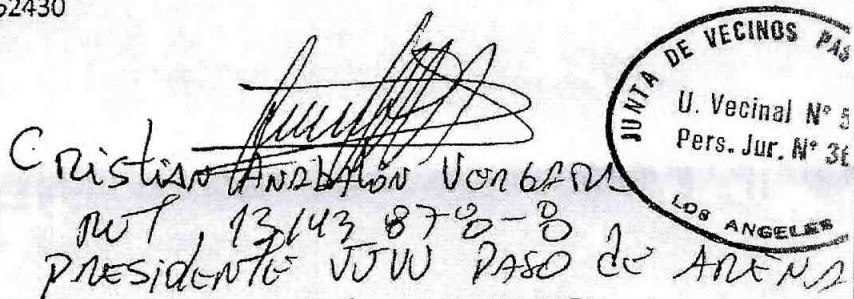 52430
JUNTA DE VECINOS PAS
U. Vecinal N° 5
Pers. Jur. N° 36
LOS ANGELES
CRistiAN ANDBALÓN VERGARA
RUT 13143 870-0
PRESIDENTE JJVV PASO de ARENA